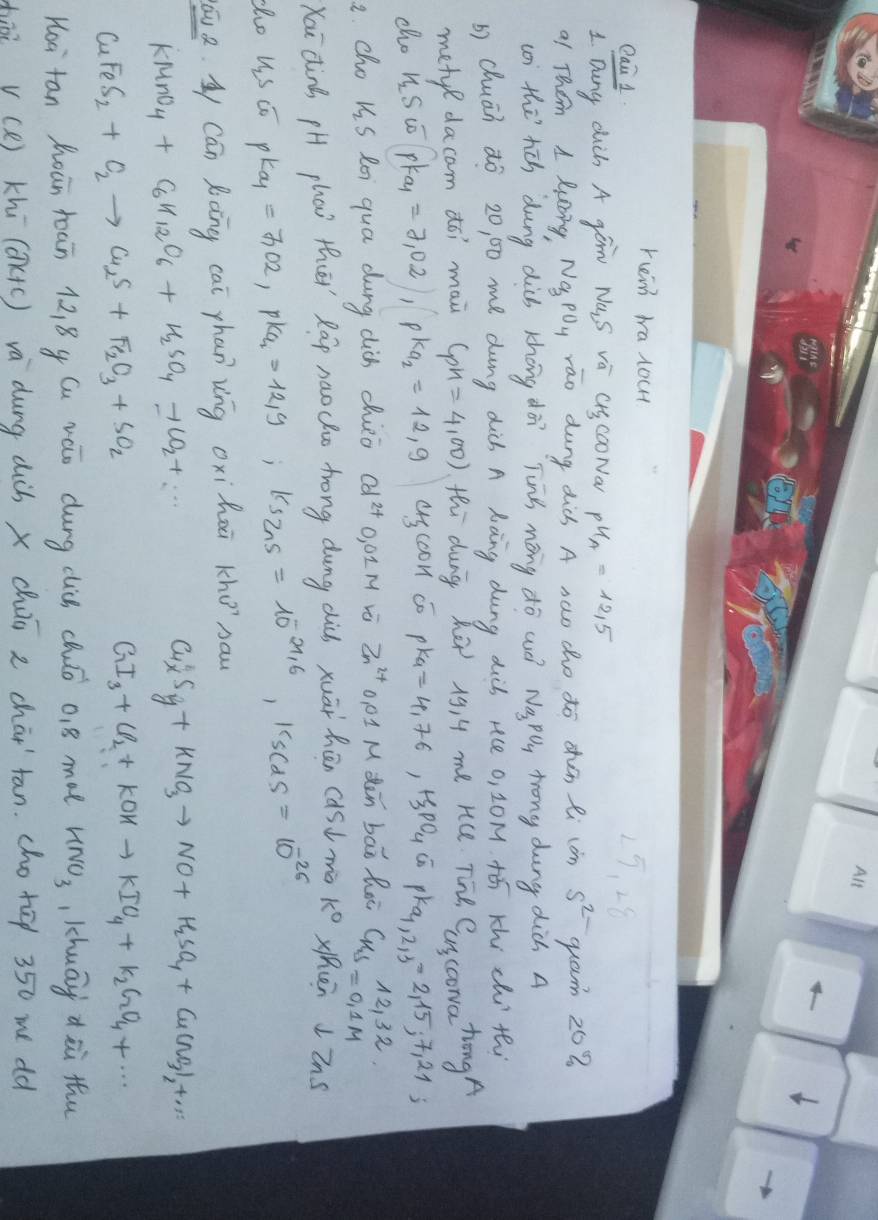 Kiểm tra 10CH
25,28
Câu 1.
1. Dung dịch A gồm Na₂S và CH₃COONa pH_A = 12,5
a) Thêm 1 lượng Na₃PO₄ vào dung dịch A sao cho độ điện li ion S²⁻ giảm 20%
coi thể tích dung dịch không đổi. Tính nồng độ của Na₃PO₄ trong dung dịch A
b) chuẩn độ 20,00 ml dung dịch A bằng dung dịch HCl 0,10M. tới khi chỉ thị
metyl da cam đổi màu (pH = 4,00) thì dùng hết 19,4 ml HCl. Tính C_CH₃COONa trong A
cho H₂S có (pka₁ = 7,02), (pka₂ = 12,9) CH₃COOH có pka = 4,76, H₃PO₄ có pka₁,₂,₃ = 2,15; 7,21;
12,32.
2. Cho H₂S lội qua dung dịch chứa Cd²⁺ 0,01M và Zn²⁺ 0,01M đến bão hoà C_H₂S = 0,1M
Xác định pH phải thiết lập sao cho trong dung dịch xuất hiện CdS↓ mà k⁰ x/hiện ↓ ZnS
cho H₂S có pka₁ = 7,02, pka₂ = 12,9 ; Ks ZnS = 10⁻²¹,⁶, Ks CdS = 10⁻²⁶
Câu 2. 1) Cân bằng các phản ứng oxi hoá khử sau
KMnO₄ + C₆H₁₂O₆ + H₂SO₄ → CO₂ + ...
CuₓS_y + HNO₃ → NO + H₂SO₄ + Cu(NO₃)₂ + ...
CuFeS₂ + O₂ → Cu₂S + Fe₂O₃ + SO₂
CrI₃ + Cl₂ + KOH → KIO₄ + K₂CrO₄ + ...
Hoà tan hoàn toàn 12,8 g Cu vào dung dịch chứa 0,8 mol HNO₃, khuấy đều thu
được V (l) khí (đktc) và dung dịch X chứa 2 chất tan. cho tiếp 350 ml dd
All
←
↓
→